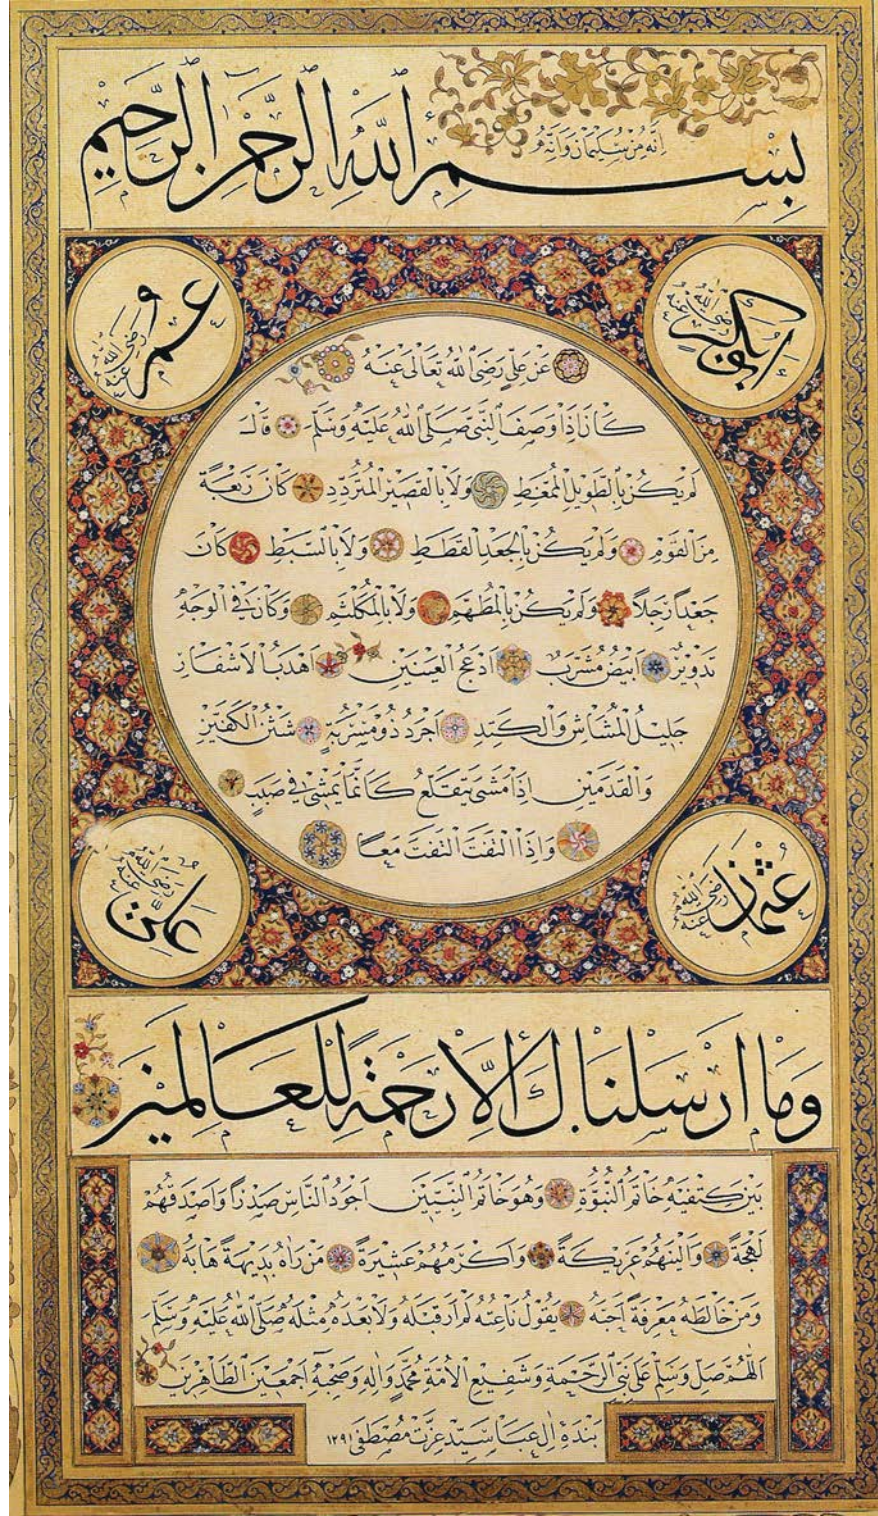 بِسْمِ اللهِ الرَّحْمٰنِ الرَّحِيمِ
اِنَّهُ مِنْ سُلَيْمَانَ وَاِنَّهُ
ابو بكر رضي الله عنه
عمر رضي الله عنه
عَنْ عَلِيٍّ رَضِيَ اللهُ تَعَالٰى عَنْهُ
كَانَ اِذَا وَصَفَ النَّبِيَّ صَلَّى اللهُ عَلَيْهِ وَسَلَّمَ قَالَ
لَمْ يَكُنْ بِالطَّوِيلِ الْمُمَّغِطِ وَلَا بِالْقَصِيرِ الْمُتَرَدِّدِ كَانَ رَبْعَةً
مِنَ الْقَوْمِ وَلَمْ يَكُنْ بِالْجَعْدِ الْقَطَطِ وَلَا بِالسَّبِطِ كَانَ
جَعْداً رَجِلاً وَلَمْ يَكُنْ بِالْمُطَهَّمِ وَلَا بِالْمُكَلْثَمِ وَكَانَ فِي الْوَجْهِ
تَدْوِيرٌ اَبْيَضُ مُشْرَبٌ اَدْعَجُ الْعَيْنَيْنِ اَهْدَبُ الْاَشْفَارِ
جَلِيلُ الْمُشَاشِ وَالْكَتَدِ اَجْرَدُ ذُو مَسْرُبَةٍ شَثْنُ الْكَفَّيْنِ
وَالْقَدَمَيْنِ اِذَا مَشٰى يَتَقَلَّعُ كَاَنَّمَا يَمْشِي فِي صَبَبٍ
وَاِذَا الْتَفَتَ الْتَفَتَ مَعًا
عثمان رضي الله عنه
علي رضي الله عنه
وَمَا اَرْسَلْنَاكَ اِلَّا رَحْمَةً لِلْعَالَمِينَ
بَيْنَ كَتِفَيْهِ خَاتَمُ النُّبُوَّةِ وَهُوَ خَاتَمُ النَّبِيِّينَ اَجْوَدُ النَّاسِ صَدْراً وَاَصْدَقُهُمْ
لَهْجَةً وَاَلْيَنُهُمْ عَرِيكَةً وَاَكْرَمُهُمْ عَشِيرَةً مَنْ رَاٰهُ بَدِيهَةً هَابَهُ
وَمَنْ خَالَطَهُ مَعْرِفَةً اَحَبَّهُ يَقُولُ نَاعِتُهُ لَمْ اَرَ قَبْلَهُ وَلَا بَعْدَهُ مِثْلَهُ صَلَّى اللهُ عَلَيْهِ وَسَلَّمَ
اَللّٰهُمَّ صَلِّ وَسَلِّمْ عَلٰى نَبِيِّ الرَّحْمَةِ وَشَفِيعِ الْاُمَّةِ مُحَمَّدٍ وَاٰلِهِ وَصَحْبِهِ اَجْمَعِينَ الطَّاهِرِينَ
بندهٔ اٰل عبا سيد عزت مصطفى ١٢٩١